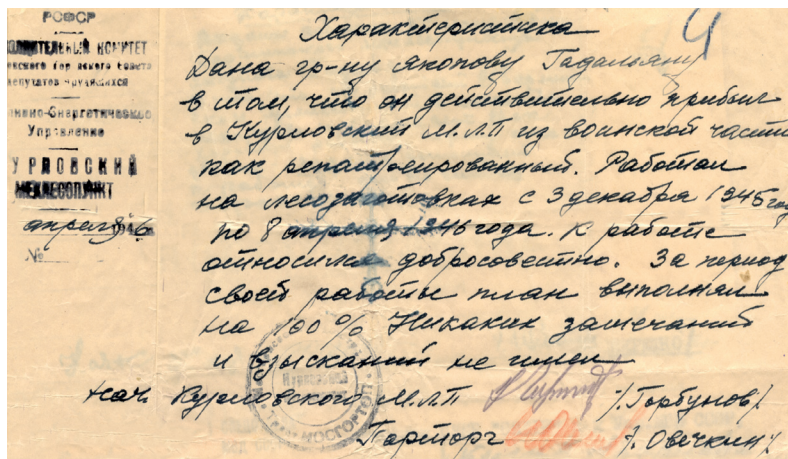 РСФСР
КОМИТЕТ
Управление
КУРЛОВСКИЙ
МЕХЛЕСОПУНКТ
апреля 1946
№
4
Характеристика
Дана гр-ну Акопову Гадальяну
в том, что он действительно прибыл
в Курловский М.Л.П из воинской части
как репатреированный. Работал
на лесозаготовках с 3 декабря 1945 год
по 8 апреля 1946 года. К работе
относился добросовестно. За период
своей работы план выполнял
на 100% Никаких замечаний
и взысканий не имел
Нач. Курловского М.Л.П /Горбунов/
Парторг /. Овечкин/
МОСГОРТОП